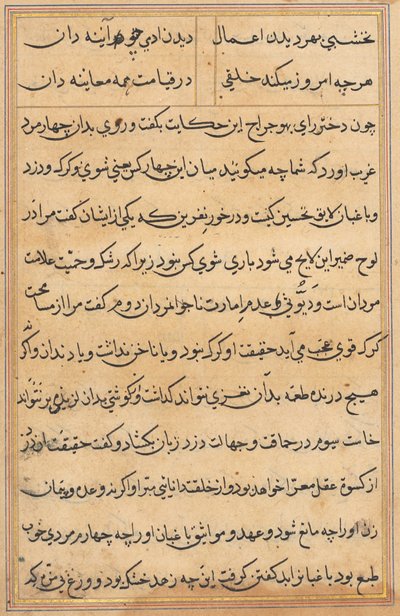 نخشبی بهر دیدن اعمال دیدن ادمی چو آینه دان
هرچه امروز میکند خلقی در قیامت همه معاینه دان
چون دختر رای بهوجراج این حکایت بکفت و روی بدان چهار مرد
غریب اورد که شما چه میکوئید میان این چهار کس یعنی شوی و کرک و دزد
و باغبان لایق تحسین کیست و در خور نفرین که یکی از ایشان کفت مرا در
لوح ضمیر این لایح می شود باری شوی کس نبود زیرا که رشک و حمیت علامت
مردان است و دیوثی و عدم امارت ناجوانمردان دوم کفت مرا از مسامحت
کرک قوی عجب می آید حقیقت او کرک نبود و یا ناخن نداشت و یا دندان و اکر
هیچ درنده طعمه بدان نغزی نتواند کذاشت و کوشتی بدان لذیذی بر نتواند
خاست سیوم در حماقت و جهالت دزد زبان بکشاد و کفت حقیقت ان دزد
از کسوة عقل معرا خواهد بود و از خلقت دانایی مبرا و اکر نه وعده و پیمان
زن او را چه مانع شود و عهد و مواثیق باغبان او را چه چهارم مردی خوب
طبع بود باغبانرا بد کفتن کرفت این چه زهد خشک بود و ورع بی مزه که